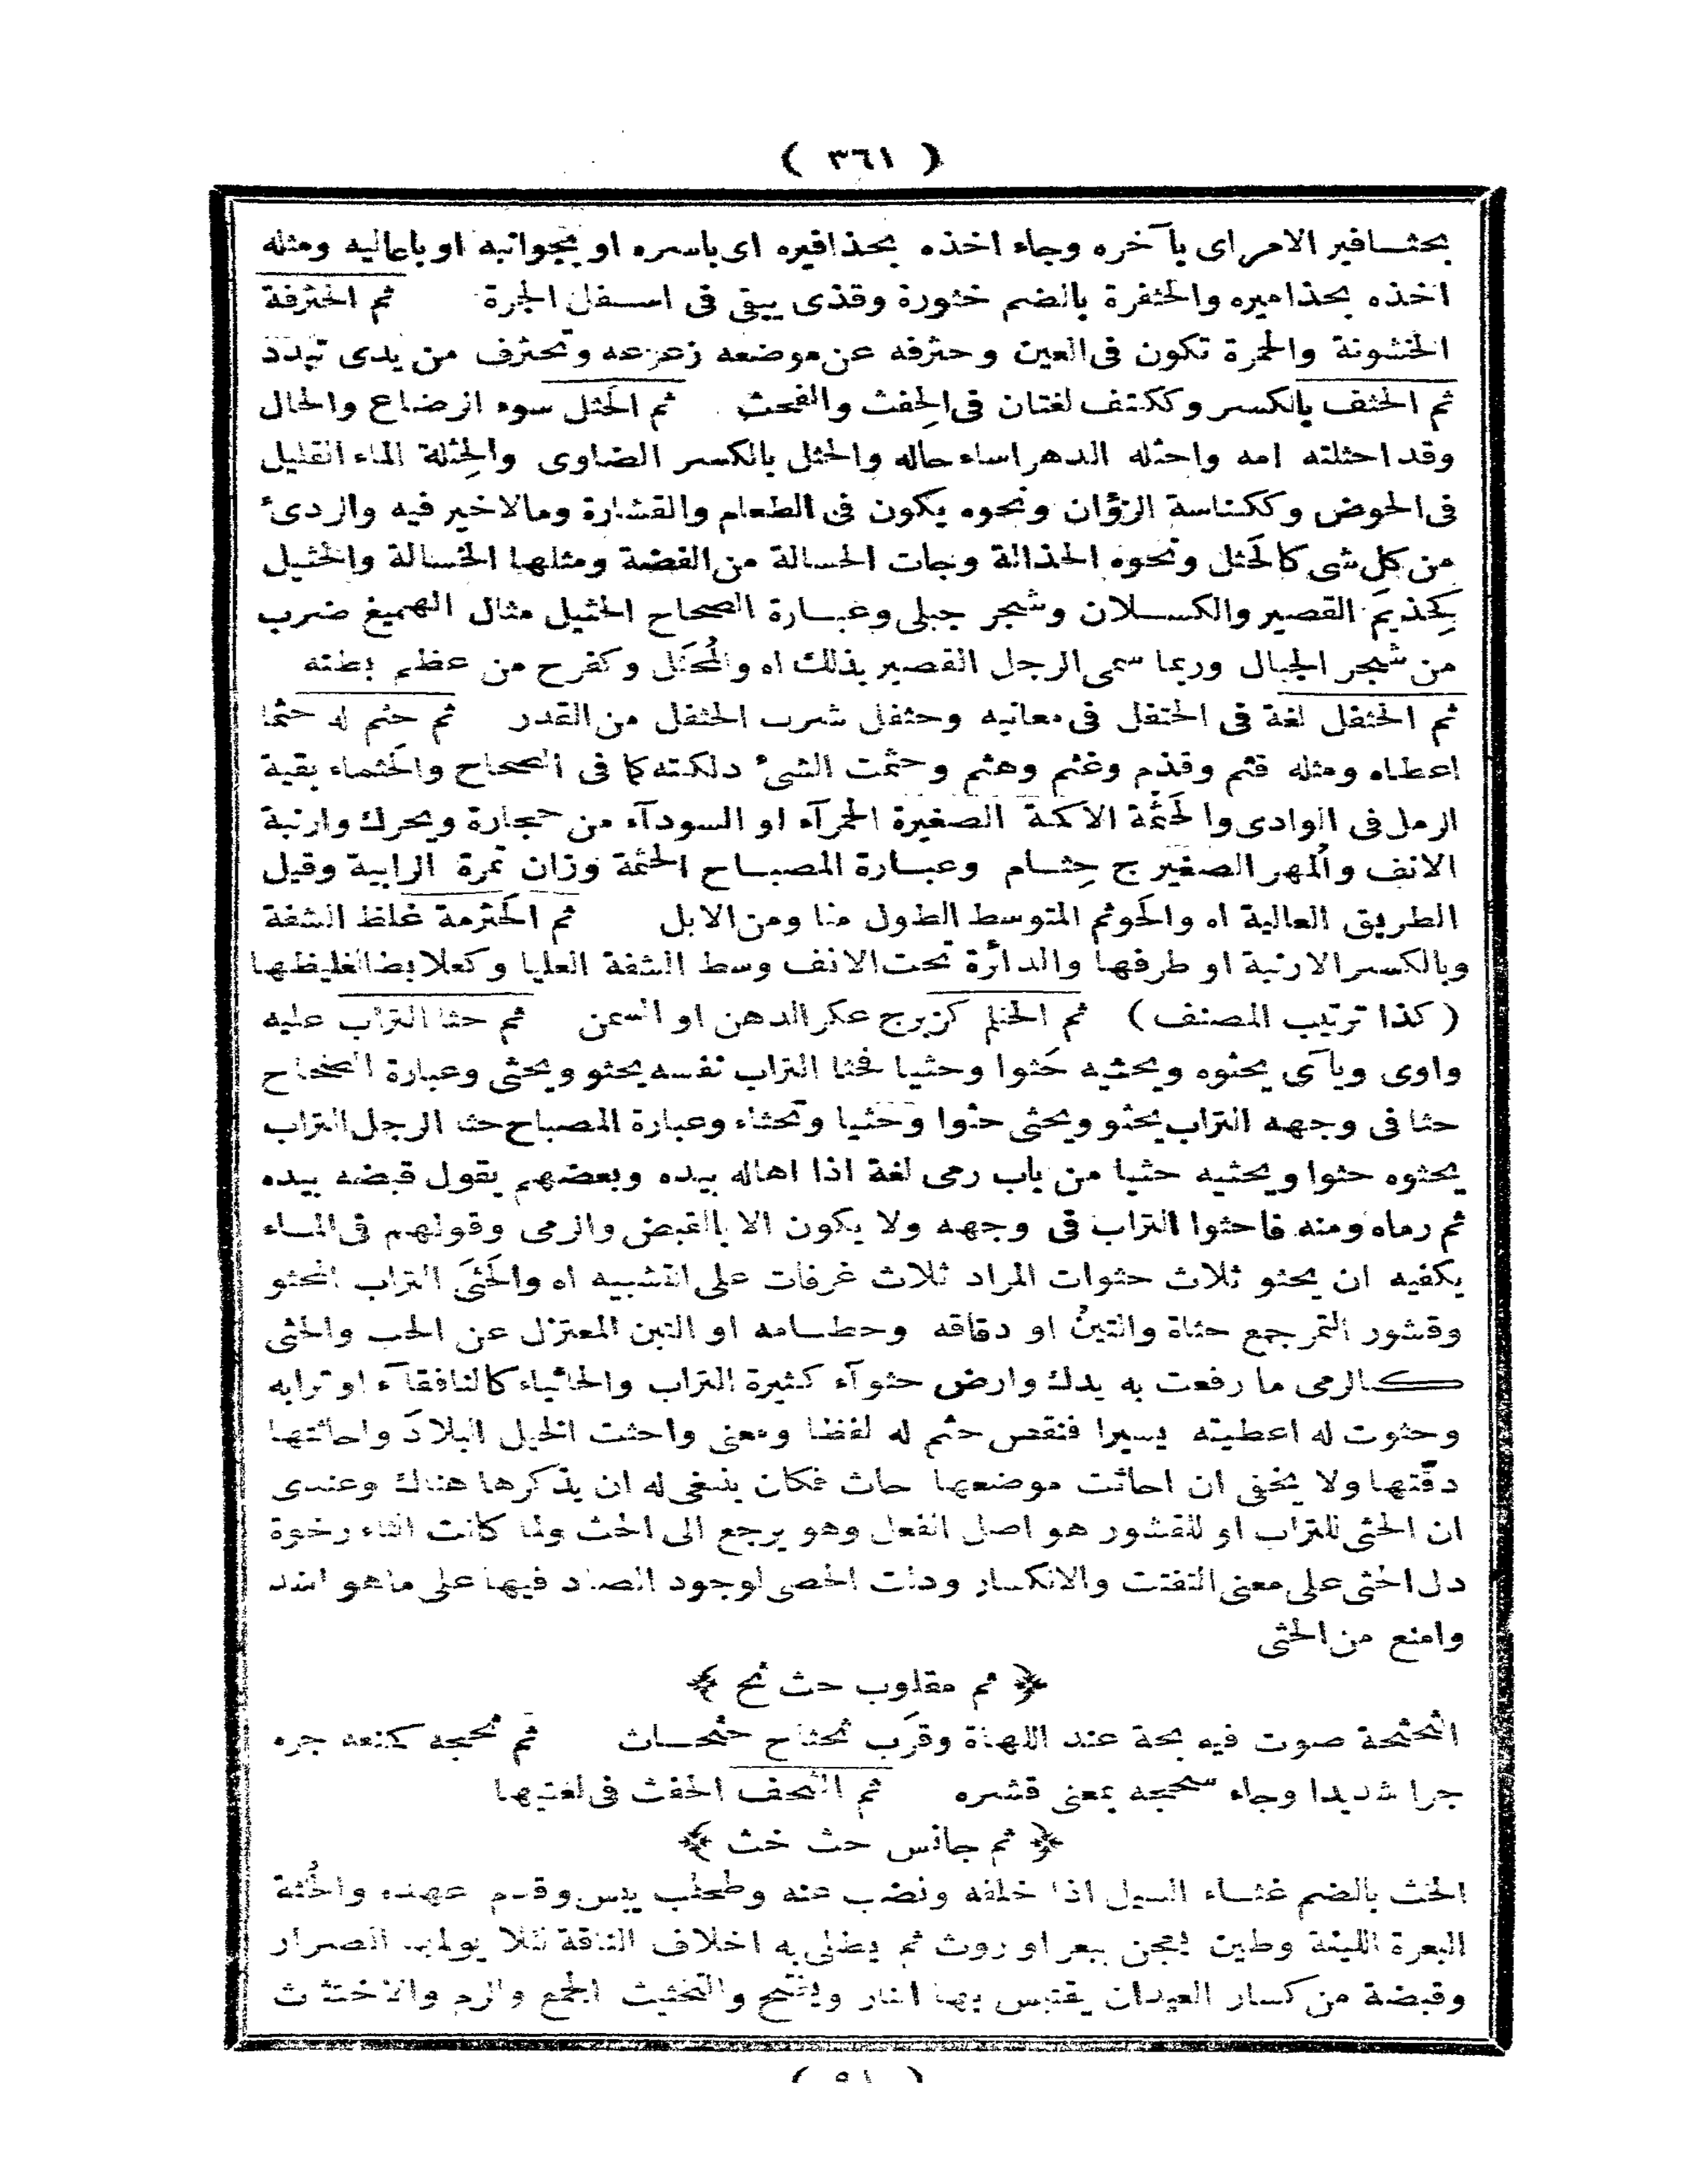 ( ٣٦١ )
بحثافير الامر اى بآخره وجاء اخذه بحذافيره اى باسره او بجوانبه او باعاليه ومثله
اخذه بحذاميره والحثفرة بالضم خثورة وقذى يبقى فى اسفل الجرة ثم الحثرفة
الخشونة والحمرة تكون فى العين وحثرفه عن موضعه زعزعه وتحثرف من يدى تبدد
ثم الحثف بالكسر وككتف لغتان فى الحِفث والفحث ثم الحَثل سوء الرضاع والحال
وقد احثلته امه واحثله الدهر اساء حاله والحثل بالكسر الضاوى والحِثلة الماء القليل
فى الحوض وككناسة الزؤان ونحوه يكون فى الطعام والقشارة ومالاخير فيه والردئ
من كل شى كالحَثل ونحوه الحذالة وجات الحسالة من الفضة ومثلها الخسالة والحثيل
كحِذيَم القصير والكسلان وشجر جبلى وعبارة الصحاح الحثيل مثال الهميغ ضرب
من شجر الجبال وربما سمى الرجل القصير بذلك اه والمُحثَل وكفرح من عظم بطنه
ثم الحثفل لغة فى الحتفل فى معانيه وحثفل شرب الحثفل من القدر ثم حثم له حثما
اعطاه ومثله قثم وقذم وغثم وهثم وحثمت الشئ دلكته كما فى الصحاح والحَثماء بقية
الرمل فى الوادى والحَثْمة الاكمة الصغيرة الحمرآء او السودآء من حجارة ويحرك وارنبة
الانف والمُهر الصغير ج حِثام وعبارة المصباح الحثمة وزان تمرة الرابية وقيل
الطريق العالية اه والحَوثم المتوسط الطول منا ومن الابل ثم الحَثرمة غلظ الشفة
وبالكسر الارنبة او طرفها والدائرة تحت الانف وسط الشفة العليا وكعلابط الغليظها
( كذا ترتيب المصنف ) ثم الحثلم كزبرج عكر الدهن او السمن ثم حثا التراب عليه
واوى ويآى يحثوه ويحثيه حَثوا وحثيا فحثا التراب نفسه يحثو ويحثى وعبارة الصحاح
حثا فى وجهه التراب يحثو ويحثى حثوا وحثيا وتحثاء وعبارة المصباح حثا الرجل التراب
يحثوه حثوا ويحثيه حثيا من باب رمى لغة اذا اهاله بيده وبعضهم يقول قبضه بيده
ثم رماه ومنه فاحثوا التراب فى وجهه ولا يكون الا بالقبض والرمى وقولهم فى الماء
يكفيه ان يحثو ثلاث حثوات المراد ثلاث غرفات على التشبيه اه والحَثَى التراب المحثو
وقشور التمر جمع حثاة والتبنُ او دقاقه وحطامه او التبن المعتزل عن الحب والحثى
كالرمى ما رفعت به يدك وارض حثوآء كثيرة التراب والحاثياء كالنافقآء او ترابه
وحثوت له اعطيته يسيرا فنقص حثم له لفظا ومعنى واحثت الخيل البلادَ واحاثتها
دقّتها ولا يخفى ان احاثت موضعها حاث فكان ينبغى له ان يذكرها هناك وعندى
ان الحثى للتراب او للقشور هو اصل الفعل وهو يرجع الى الحث ولما كانت الثاء رخوة
دل الحثى على معنى التفتت والانكسار ودلت الحصى لوجود الصاد فيها على ماهو اشد
وامنع من الحثى
﴿ ثم مقلوب حث ثح ﴾
الثحثحة صوت فيه بحة عند اللهاة وقَرَب ثحثاح حثحاث ثم ثحجه كمنعه جره
جرا شديدا وجاء سحجه بمعنى قشره ثم الثحف الحفث فى لغتيها
﴿ ثم جانس حث خث ﴾
الخث بالضم غثاء السيل اذا خلفه ونضب عنه وطحلب يبس وقدم عهده والخُثة
البعرة اللينة وطين يعجن ببعر او روث ثم يطلى به اخلاف الناقة لئلا يولمها الصرار
وقبضة من كسار العيدان يقتبس بها النار ويفتح والتخثيث الجمع والرم والاختثاث
( ٥١ )